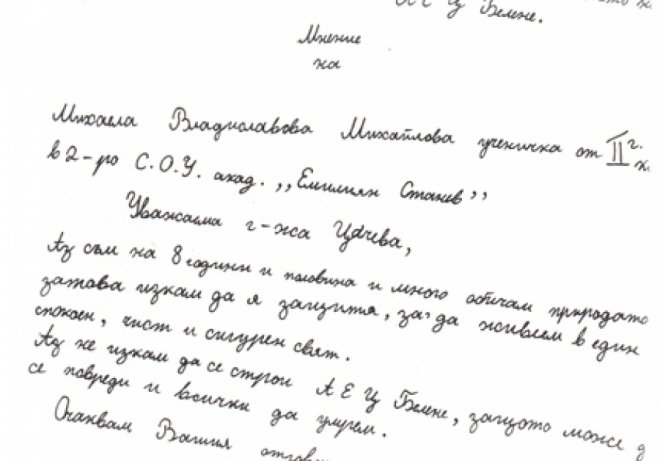 АЕЦ Белене.
Мнение
на
Михаела Владиславова Михайлова ученичка от II г.
в 2-ро С.О.У. акад. ,,Емилиян Станев”
Уважаема г-жа Цачева,
Аз съм на 8 години и половина и много обичам природата
затова искам да я защитя, за да живеем в един
спокоен, чист и сигурен свят.
Аз не искам да се строи АЕЦ Белене, защото може д
се повреди и всички да умрем.
Очаквам Вашия отгов